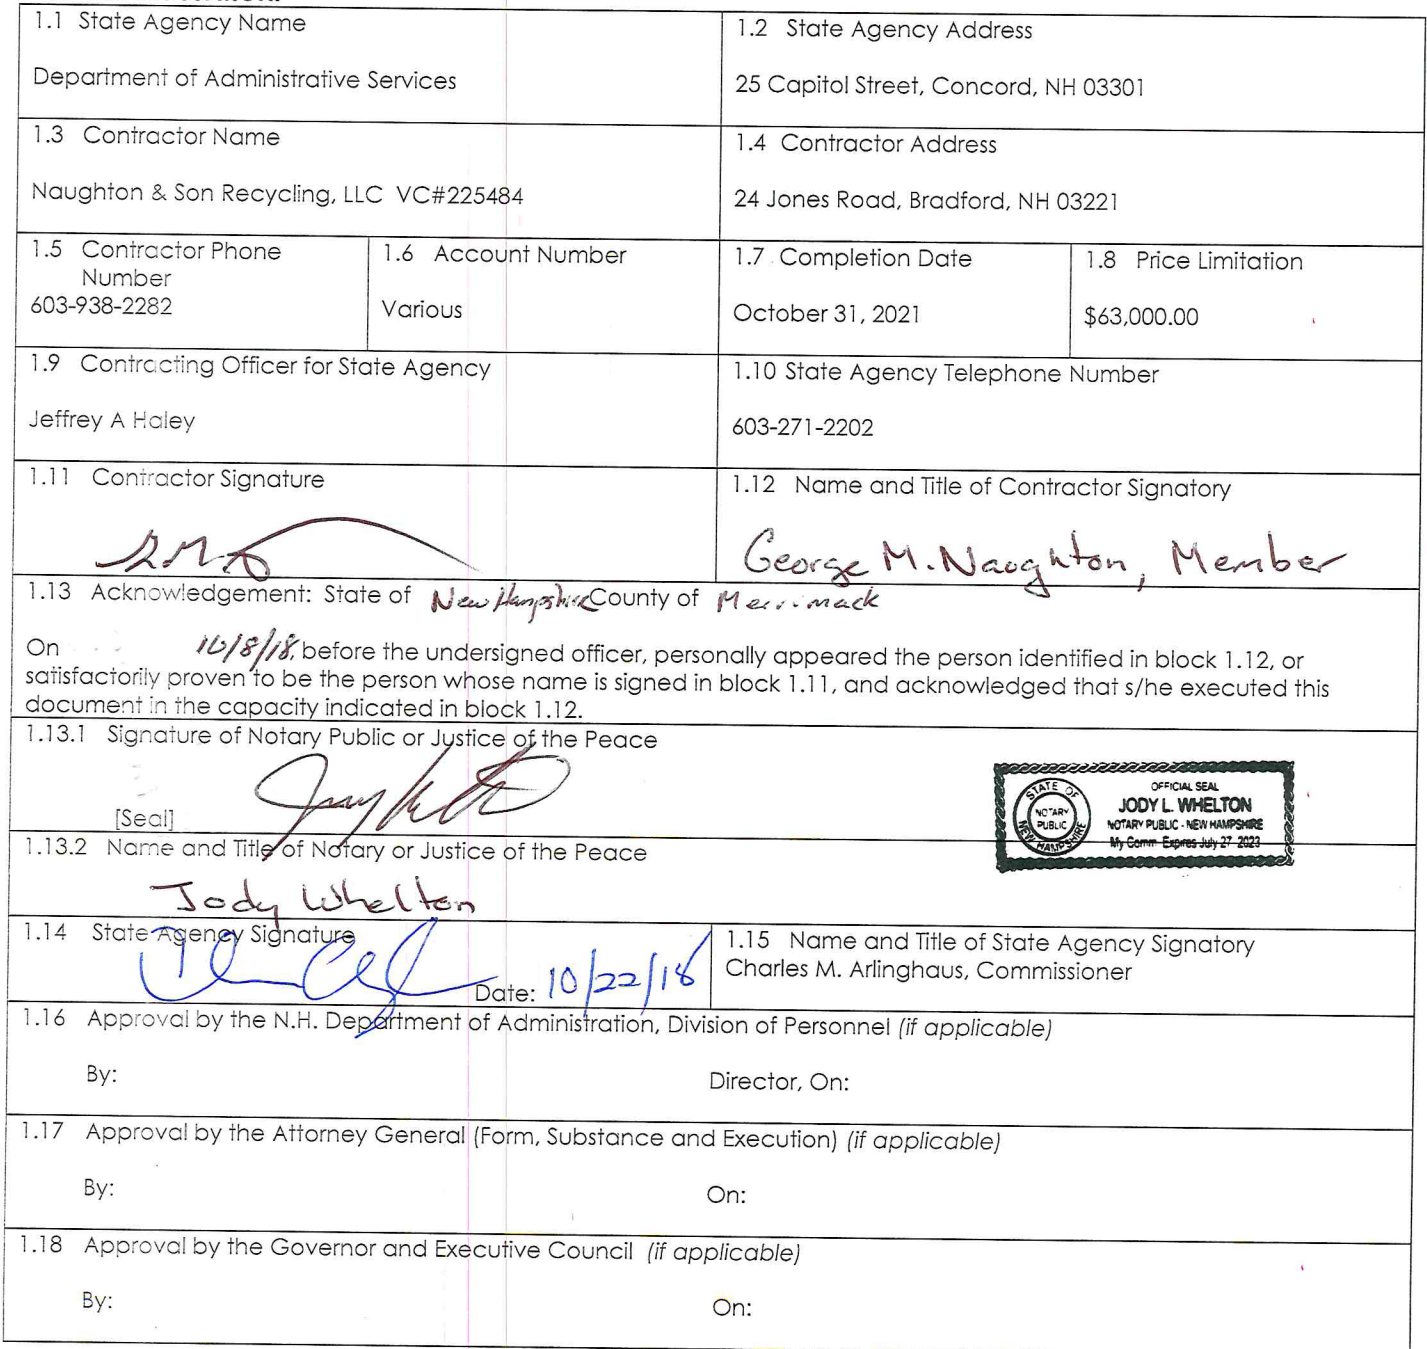 1.1 State Agency Name
Department of Administrative Services
1.2 State Agency Address
25 Capitol Street, Concord, NH 03301
1.3 Contractor Name
Naughton & Son Recycling, LLC VC#225484
1.4 Contractor Address
24 Jones Road, Bradford, NH 03221
1.5 Contractor Phone
Number
603-938-2282
1.6 Account Number
Various
1.7 Completion Date
October 31, 2021
1.8 Price Limitation
$63,000.00
1.9 Contracting Officer for State Agency
Jeffrey A Haley
1.10 State Agency Telephone Number
603-271-2202
1.11 Contractor Signature
1.12 Name and Title of Contractor Signatory
George M. Naughton, Member
1.13 Acknowledgement: State of New Hampshire County of Merrimack
On 10/8/18, before the undersigned officer, personally appeared the person identified in block 1.12, or
satisfactorily proven to be the person whose name is signed in block 1.11, and acknowledged that s/he executed this
document in the capacity indicated in block 1.12.
1.13.1 Signature of Notary Public or Justice of the Peace
[Seal]
STATE OF
NEW HAMPSHIRE
NOTARY
PUBLIC
OFFICIAL SEAL
JODY L. WHELTON
NOTARY PUBLIC - NEW HAMPSHIRE
My Comm. Expires July 27, 2023
1.13.2 Name and Title of Notary or Justice of the Peace
Jody Whelton
1.14 State Agency Signature
Date: 10/22/18
1.15 Name and Title of State Agency Signatory
Charles M. Arlinghaus, Commissioner
1.16 Approval by the N.H. Department of Administration, Division of Personnel (if applicable)
By: Director, On:
1.17 Approval by the Attorney General (Form, Substance and Execution) (if applicable)
By: On:
1.18 Approval by the Governor and Executive Council (if applicable)
By: On: